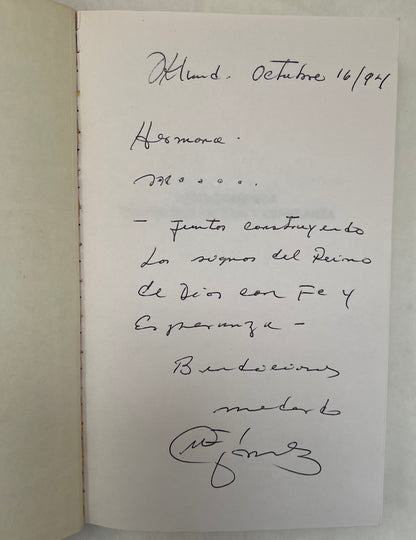 Oklund. Octubre 16/94
Hermana.
- Juntos construyendo
los signos del Reino
de Dios con Fe y
Esperanza -
Bendiciones
Medardo
Gómez